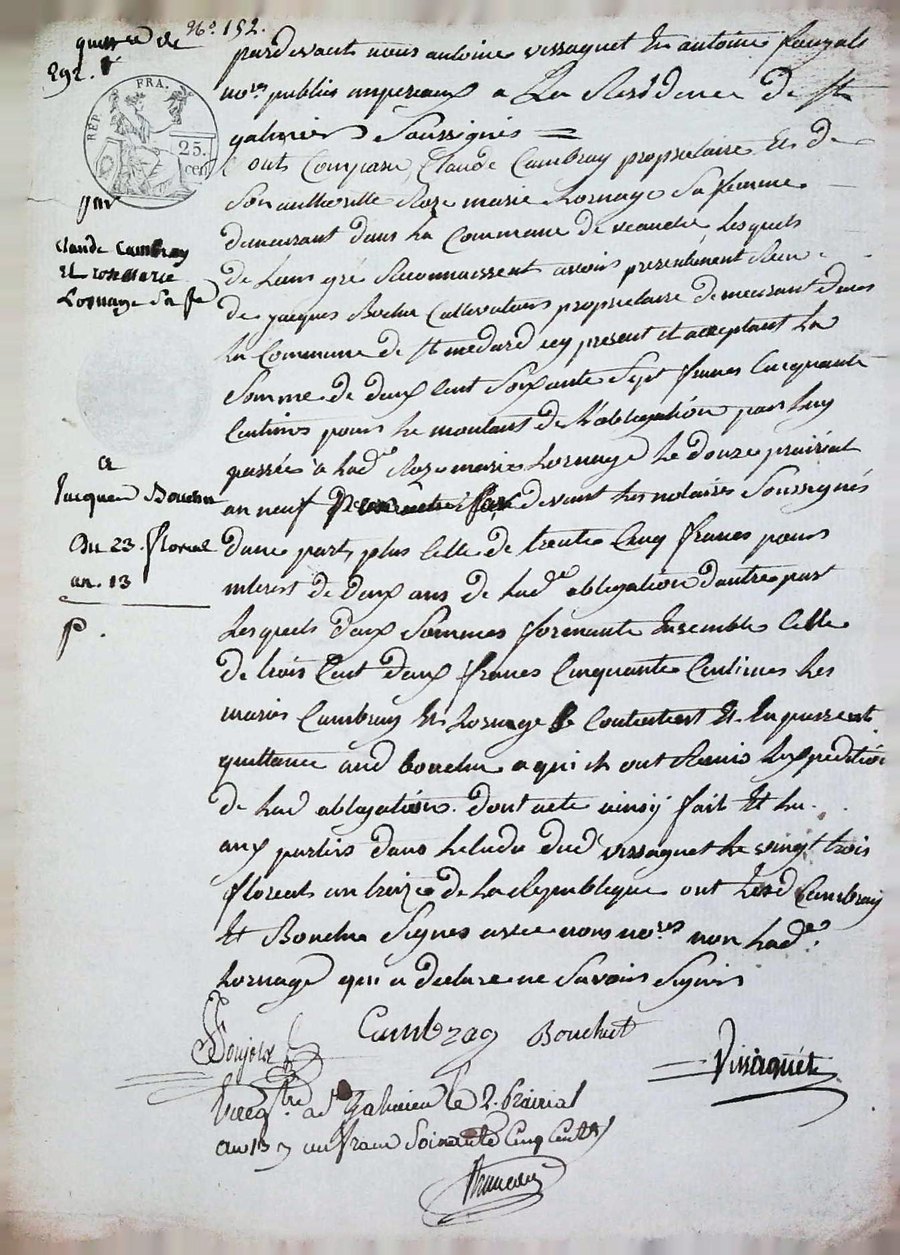 N.° 152.
quittance de
292. f
RÉP. FRA.
25.
cen
par
Claude Cambray
et rosemarie
Lornage sa fe
a
Jacques Bouchu
Du 23. floreal
an. 13
P.
pardevant nous antoine vissaguet et antoine
no.res publics imperiaux a La Résidence de St
galmier Soussignés =
ont Comparu Claude Cambray proprietaire Et de
Son authorité Roze marie Lornage Sa femme
demeurant dans La Commune de veauche Lesquels
de Leur gré Reconnaissent avoir presentement Recu
de jacques Bochu Cultivateur proprietaire demeurant dans
La Commune de St medard icy present et acceptant La
Somme de deux Cent Soixante Sept francs Cinquante
Centimes pour Le montant de L'obligation par Luy
passée a Lad.e Roze marie Lornage Le douze prairial
an neuf devant Les notaires Soussignés
dune part, plus Celle de trente Cinq francs pour
interest de deux ans de Lad.e obligation dautre part
Lesquels deux Sommes formante Ensemble Celle
de trois Cent deux francs Cinquante Centimes Les
maries Cambray Et Lornage Se Contentent Et En passent
quittance aud bouchu a qui ils ont Remis Lexpedition
de Lad obligation. dont acte ainsy fait Et Lu
aux parties dans Letude dud vissaguet Le vingt trois
floreal an treize de La Republique ont Lesd Cambray
Et Bouchu Signes avec nous no.res non Lad.e
Lornage qui a declare ne Savoir Signer
Cambray Bouchut
Vissaguet
Enregt.re a St Galmier le 2. Prairial
an 13 un franc Soixante Cinq Cent